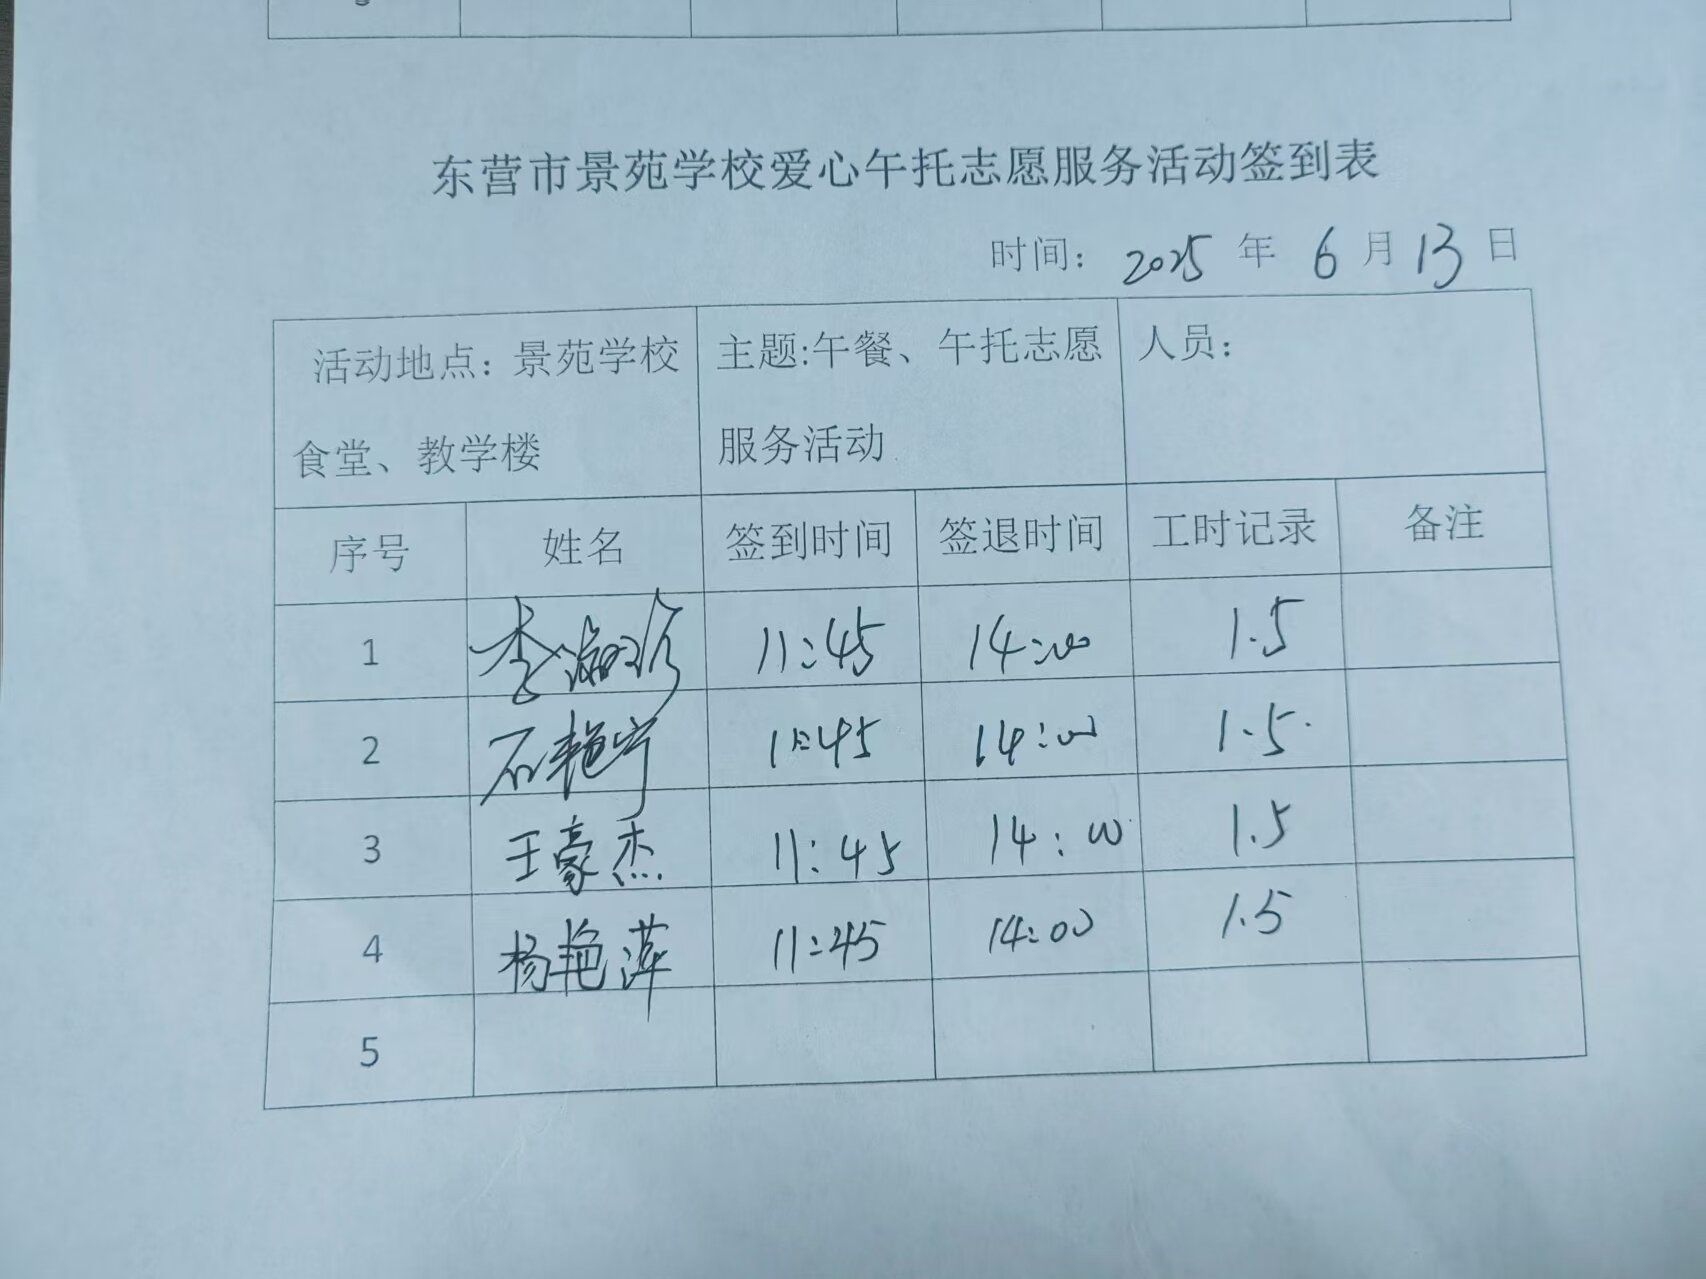 东营市景苑学校爱心午托志愿服务活动签到表
时间： 2025 年 6 月 13 日
活动地点：景苑学校食堂、教学楼 主题:午餐、午托志愿服务活动 人员：
序号 姓名 签到时间 签退时间 工时记录 备注
1 李淑珍 11:45 14:00 1.5
2 石艳宁 11:45 14:00 1.5.
3 王豪杰 11:45 14:00 1.5
4 杨艳萍 11:45 14:00 1.5
5